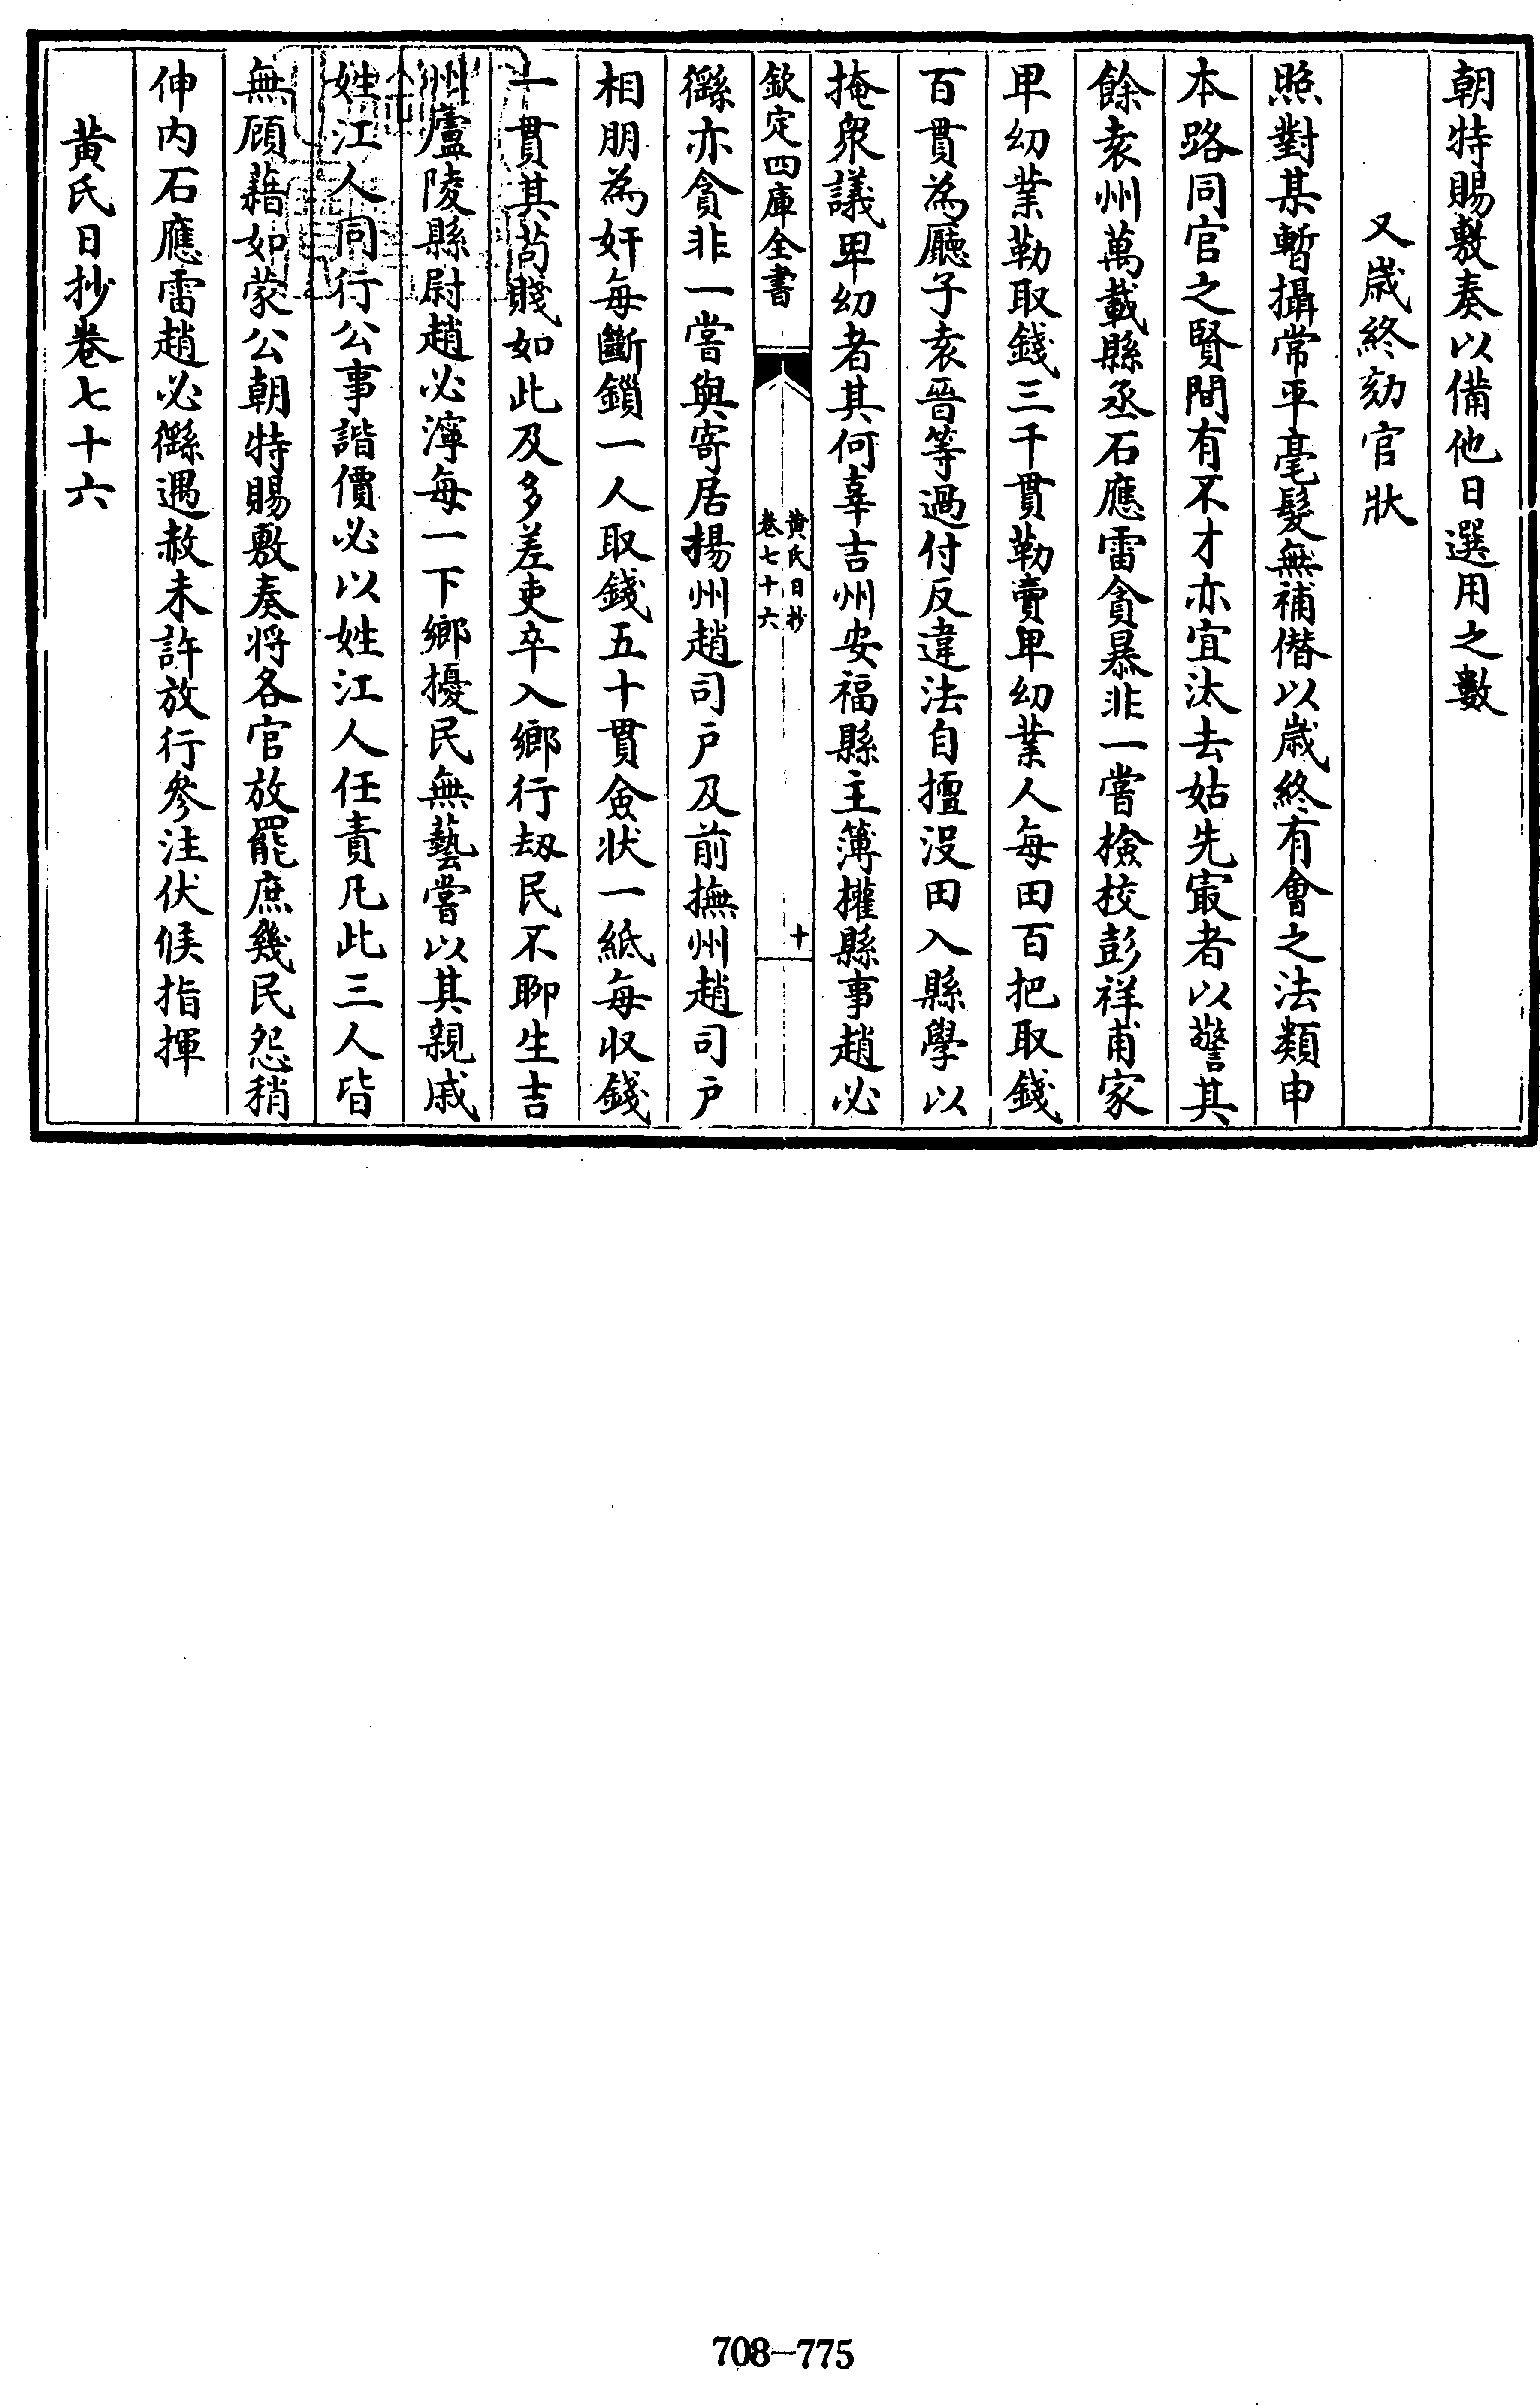 朝特賜敷奏以備他日選用之數
又歳終劾官狀
照對某暫攝常平毫髮無補僭以歳終有會之法類申
本路同官之賢間有不才亦宜汰去姑先㝡者以警其
餘袁州萬載縣丞石應雷貪暴非一嘗檢校彭祥甫家
卑幼業勒取錢三千貫勒賣卑幼業人每田百把取錢
百貫為廳子袁晉等過付反違法自擅没田入縣學以
掩衆議卑幼者其何辜吉州安福縣主簿權縣事趙必
欽定四庫全書
黄氏日抄
卷七十六
十
亦貪非一嘗與寄居揚州趙司戸及前撫州趙司戸
相朋為奸每斷鎖一人取錢五十貫僉狀一紙每收錢
一貫其苟賤如此及多差吏卒入鄉行刼民不聊生吉
州廬陵縣尉趙必濘每一下鄉擾民無藝嘗以其親戚
姓江人同行公事諧價必以姓江人任責凡此三人皆
無顧藉如蒙公朝特賜敷奏将各官放罷庶幾民怨稍
伸内石應雷趙必遇赦未許放行參注伏候指揮
黄氏日抄卷七十六
708-775